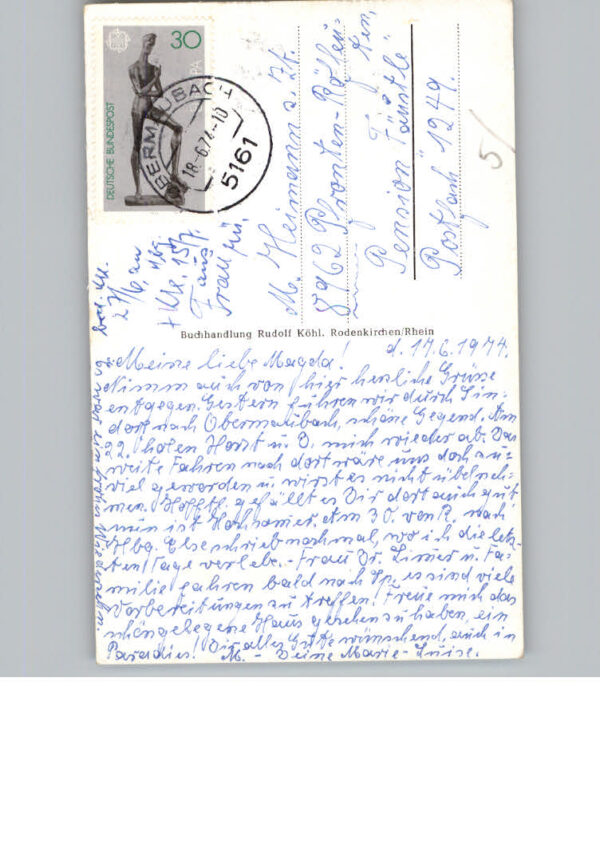 30
EUROPA
DEUTSCHE BUNDESPOST
OBERMAUBACH
18.-6.74-10
5161
Frau
M. Heimann z. Zt.
8962 Pfronten-Röfleu-
ten,
Pension Fäustle
Postfach 1249.
5/
Buchhandlung Rudolf Köhl. Rodenkirchen/Rhein
Meine liebe Magda! d. 17.6.1974.
Nimm auch von hier herzliche Grüsse
entgegen. Gestern fuhren wir durch Sin-
dorf nach Obermaubach, schöne Gegend. Am
22. holen Horst u. D. mich wieder ab. Das
weite Fahren nach dort wäre uns doch zu-
viel geworden u. wirst es nicht übelneh-
men. Hofftl. gefällt es Dir dort auch gut
nun ist Hochsomer. Am 30. von R. nach
Hbg. Else schrieb nochmal, wo ich die letz-
ten Tage verlebe. - Frau Dr. Limer u. Fa-
milie fahren bald nach Sp., es sind viele
Vorbereitungen zu treffen! Freue mich das
schöngelegene Haus gesehen zu haben, ein
Paradies! Dir alles Gute wünschend, auch in
M. - Deine Marie-Luise.